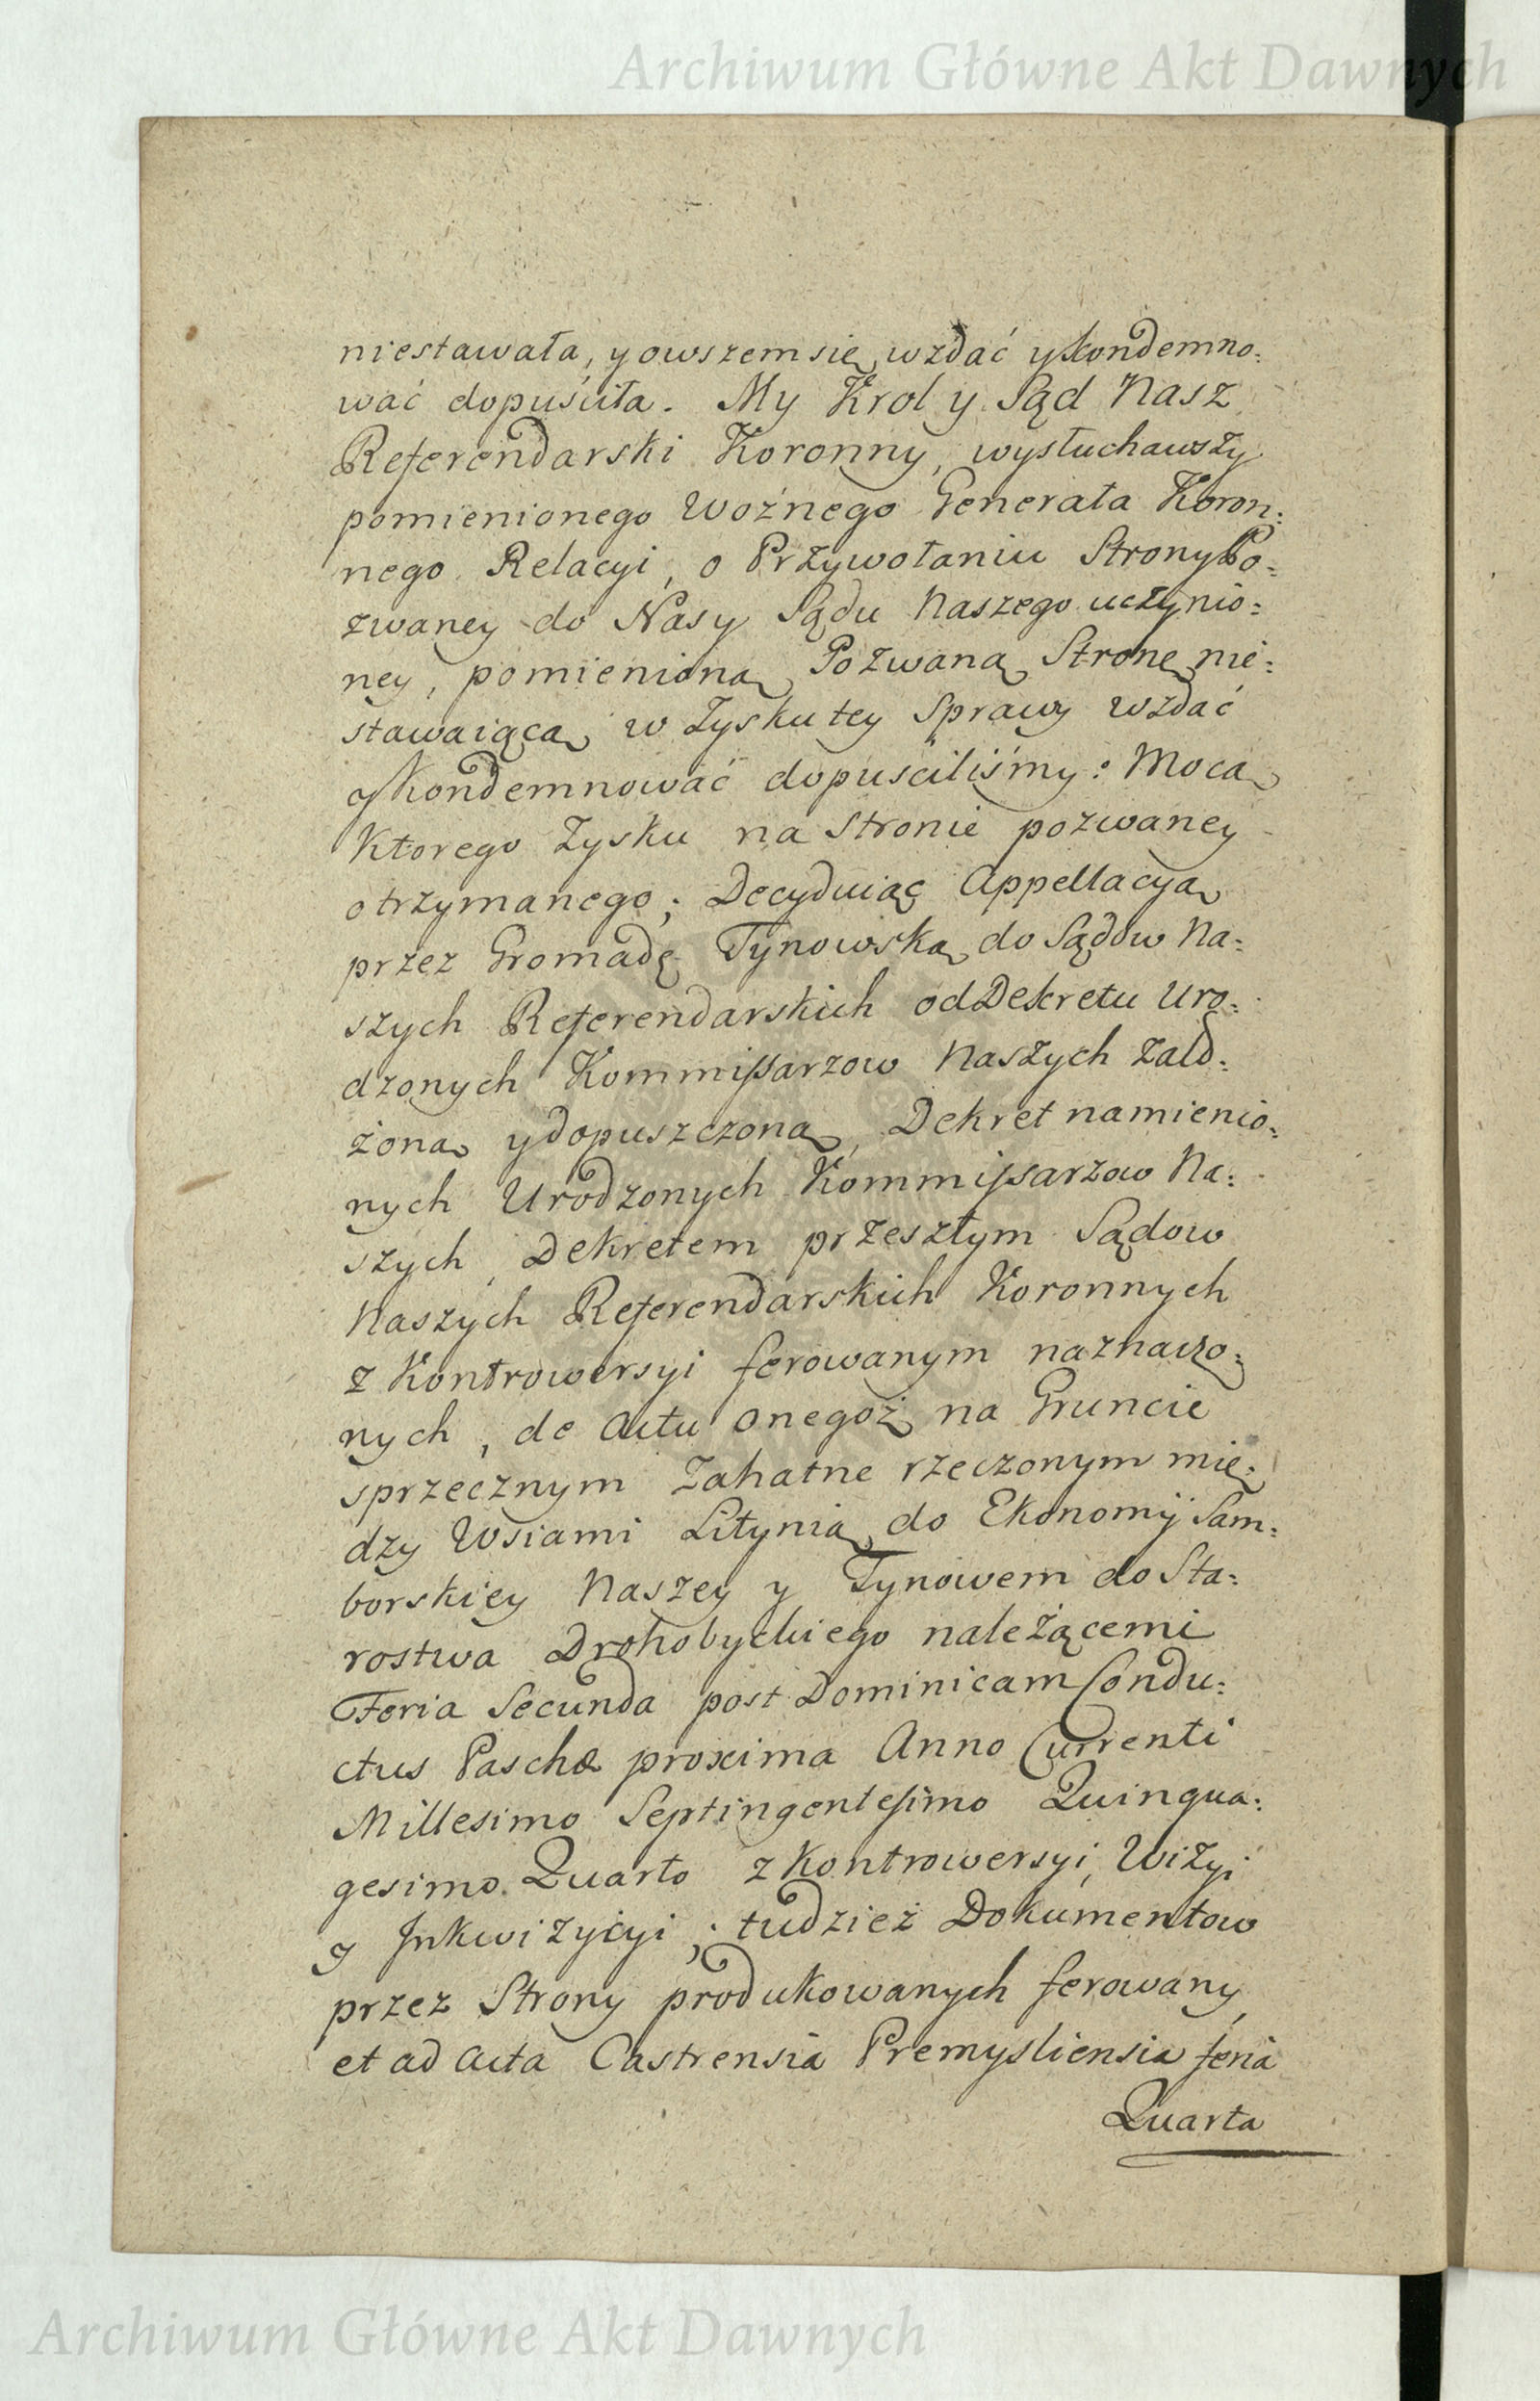 Archiwum Główne Akt Dawnych
niestawała, y owszem się wzdać y kondemno=
wać dopuściła. My Krol y Sąd Nasz
Referendarski Koronny, wysłuchawszy
pomienionego Woźnego Generała Koron=
nego Relacyi, o Przywołaniu Strony Po=
zwaney do Nasy Sądu Naszego uczynio=
ney, pomienioną Pozwaną Stronę nie=
stawaiącą w Zysku tey Sprawy wzdać
y Kondemnować dopuściliśmy: Mocą
Ktorego Zysku na Stronie pozwaney
otrzymanego; Decyduiąc Appellacyą
przez Gromadę Tynowską do Sądow Na=
szych Referendarskich od Dekretu Uro=
dzonych Kommissarzow Naszych zało=
żoną y dopuszczoną, Dekret namienio=
nych Urodzonych Kommissarzow Na=
szych, Dekretem przeszłym Sądow
Naszych Referendarskich Koronnych
z Kontrowersyi ferowanym naznaczo=
nych, de Actu onegoż na Gruncie
sprzecznym Zahatne rzeczonym mię=
dzy Wsiami Litynią do Ekonomij Sam=
borskiey Naszey y Tynowem do Sta=
rostwa Drohobyckiego należącemi
Feria Secunda post Dominicam Condu=
ctus Paschæ proxima Anno Currenti
Millesimo Septingentesimo Quinqua=
gesimo Quarto z Kontrowersyi, Wizyi
y Inkwizycyi; tudzież Dokumentow
przez Strony produkowanych ferowany,
et ad Acta Castrensia Premysliensia feria
Quarta
Archiwum Główne Akt Dawnych